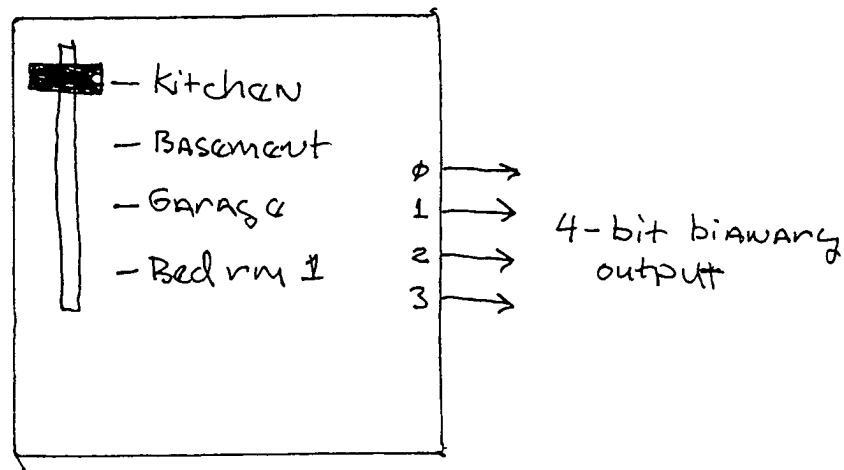 - Kitchen
- Basement
- Garage
- Bedrm 1
0
1
2
3
4-bit bianary
output